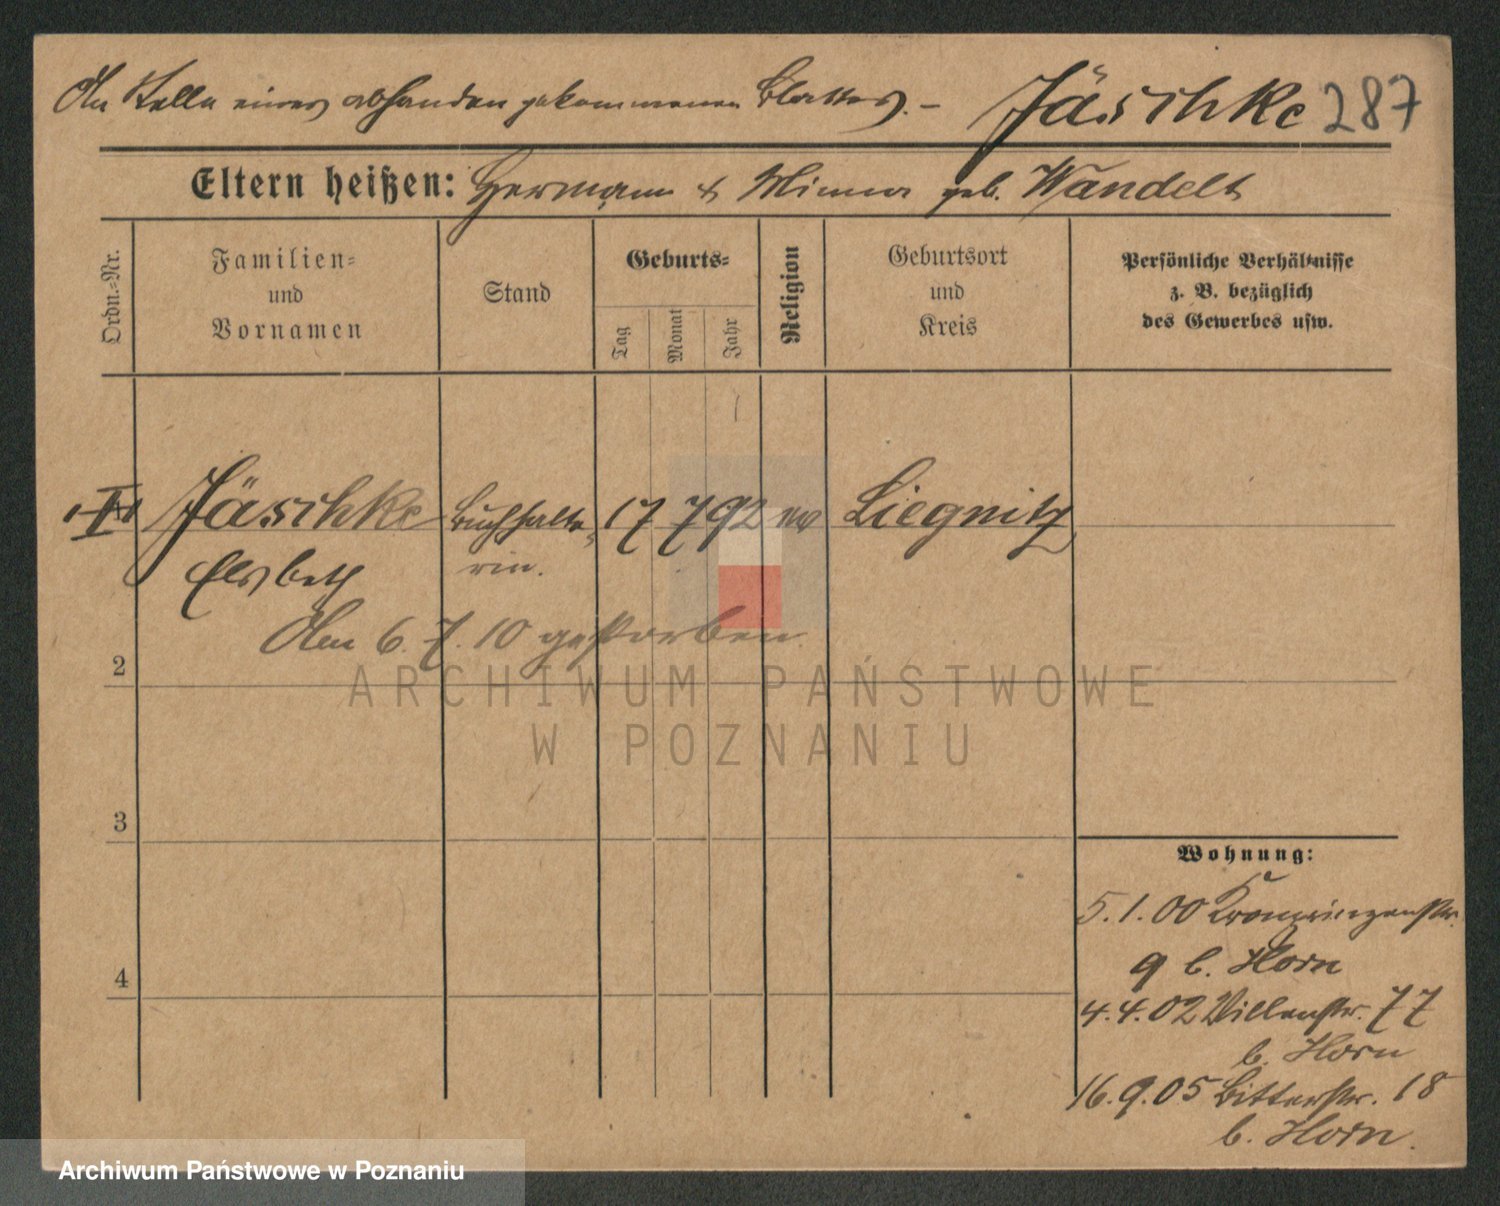 An Stelle eines abhanden gekommenen Blattes. – Jäschke 287
Eltern heißen: Hermann & Minna geb. Wandelt
Ordn.-Nr.
Familien- und Vornamen
Stand
Geburts-
Tag
Monat
Jahr
Religion
Geburtsort und Kreis
Persönliche Verhältnisse
z. B. bezüglich
des Gewerbes usw.
Jäschke Buchhalte- 17 7 92 ev Liegnitz
Elsbeth rin.
Am 6. 7. 10 gestorben.
2
3
4
Wohnung:
5.1.00 Kronprinzenstr.
9 b. Horn
4.4.02 Villenstr. 77
b. Horn
16.9.05 Bitterstr. 18
b. Horn.
ARCHIWUM PAŃSTWOWE
W POZNANIU
Archiwum Państwowe w Poznaniu